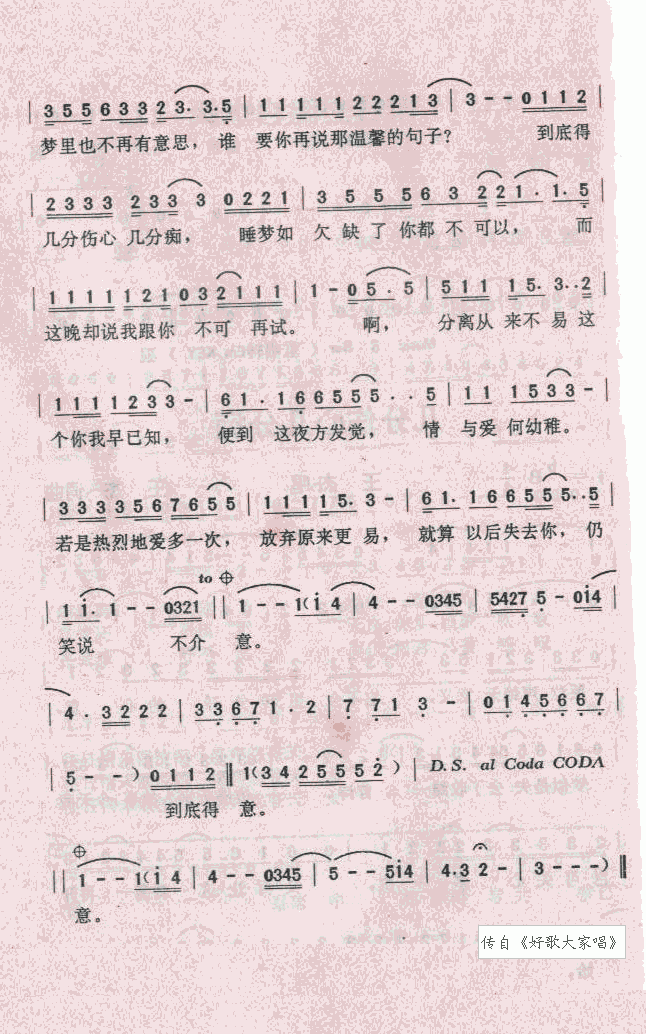 | 3 5 5 6 3 3 2 3. 3. 5 | 1 1 1 1 1 2 2 2 1 3 | 3 - - 0 1 1 2 |
梦里也不再有意思，谁 要你再说那温馨的句子？ 到底得
| 2 3 3 3 2 3 3 3 3 0 2 2 1 | 3 5 5 5 6 3 2 2 1 . 1. 5
几分伤心 几分痴， 睡梦如 欠缺了你都不可以， 而
| 1 1 1 1 1 2 1 0 3 2 1 1 1 | 1 - 0 5 . 5 | 5 1 1 1 5. 3 . . 2 |
这晚却说我跟你 不可 再试。 啊， 分离从 来不易这
| 1 1 1 1 2 3 3 - | 6 1 . 1 6 6 5 5 5 . . 5 | 1 1 1 5 3 3 - |
个你我早已知， 便到 这夜方发觉， 情 与爱何幼稚。
| 3 3 3 3 5 6 7 6 5 5 | 1 1 1 1 5. 3 - | 6 1. 1 6 6 5 5 5 . . 5 |
若是热烈地爱多一次， 放弃原来更易， 就算 以后失去你，仍
to
| 1 1. 1 - - 0321 || 1 - - 1 ( 1 4 | 4 - - 0345 | 5427 5 - 014 |
笑说 不介 意。
| 4 . 3 2 2 2 | 3 3 6 7 1 . 2 | 7 7 1 3 - | 0 1 4 5 6 6 7 |
| 5 - - ) 0 1 1 2 || 1 ( 3 4 2 5 5 5 2 ) | D.S. al Coda CODA
到底得 意。
|| 1 - - 1 ( 1 4 | 4 - - 0345 | 5 - - 514 | 4. 3 2 - | 3 - - - ) ||
意。
传自《好歌大家唱》